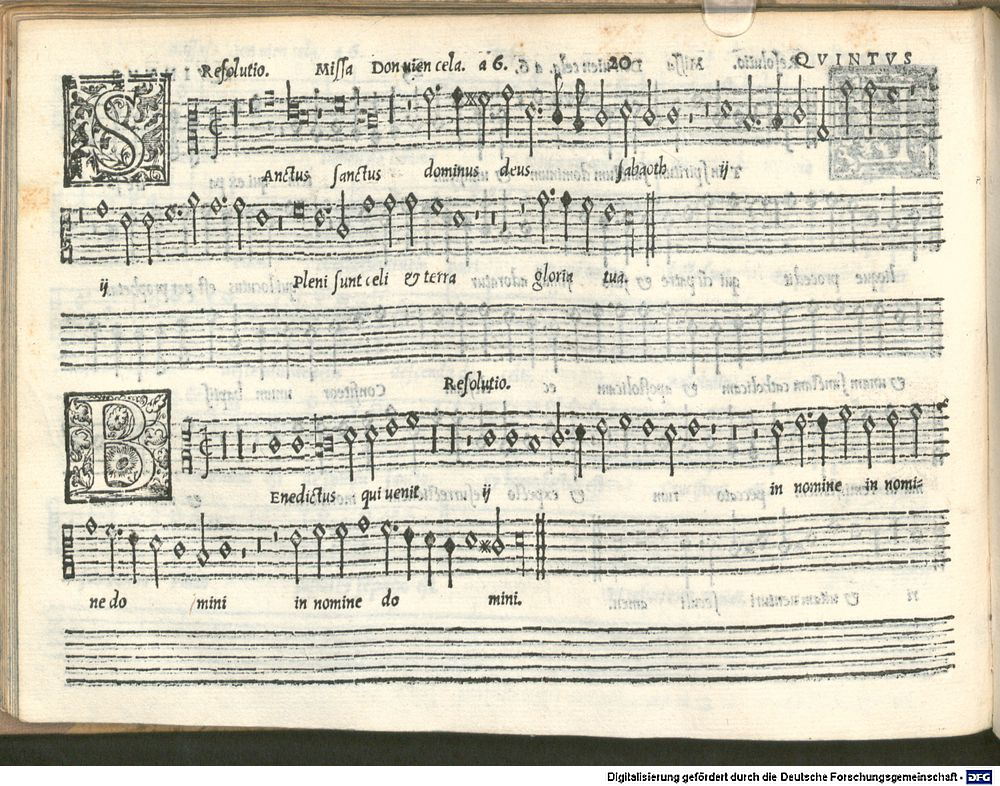 Resolutio. Missa Don vien cela. a 6. 20 QVINTVS
SAnctus sanctus dominus deus sabaoth ij
ij Pleni sunt celi & terra gloria tua.
Resolutio.
BEnedictus qui uenit ij in nomine in nomi-
ne do mini in nomine do mini.
Digitalisierung gefördert durch die Deutsche Forschungsgemeinschaft - DFG